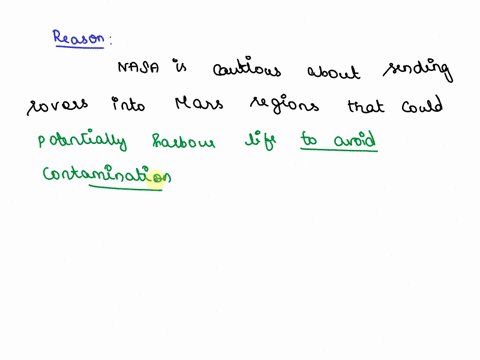 Reason:
NASA is cautious about sending
rovers into Mars regions that could
potentially harbour life to avoid
contamination